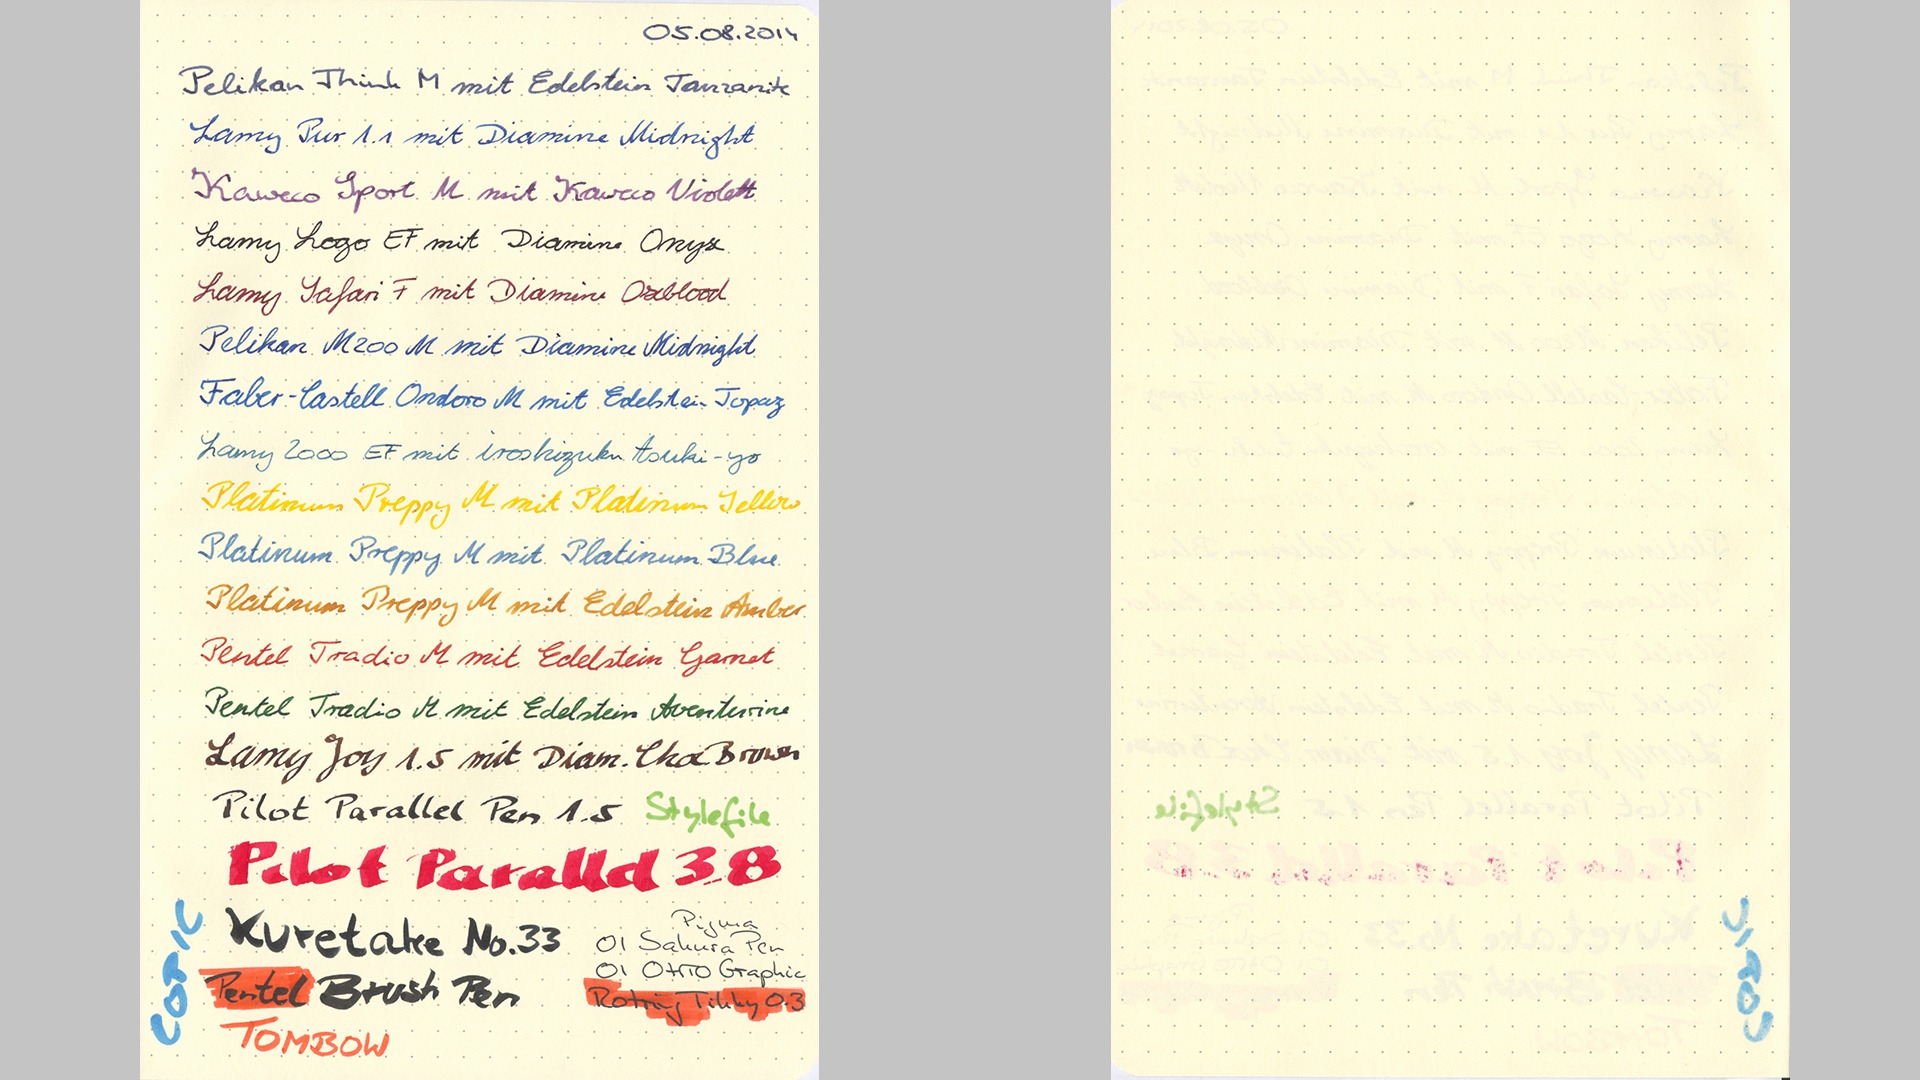 05.08.2014
Pelikan Think M mit Edelstein Tanzanite
Lamy Pur 1.1 mit Diamine Midnight
Kaweco Sport M mit Kaweco Violett
Lamy Logo EF mit Diamine Onyx
Lamy Safari F mit Diamine Oxblood
Pelikan M200 M mit Diamine Midnight
Faber-Castell Ondoro M mit Edelstein Topaz
Lamy 2000 EF mit iroshizuku tsuki-yo
Platinum Preppy M mit Platinum Yellow
Platinum Preppy M mit Platinum Blue
Platinum Preppy M mit Edelstein Amber
Pentel Tradio M mit Edelstein Garnet
Pentel Tradio M mit Edelstein Aventurine
Lamy Joy 1.5 mit Diam. Choc Brown
Pilot Parallel Pen 1.5 Stylefile
Pilot Parallel 3.8
COPIC
Kuretake No.33
Pigma
01 Sakura Pen
01 OTTO Graphic
Pentel Brush Pen
Rotring Tikky 0.3
TOMBOW